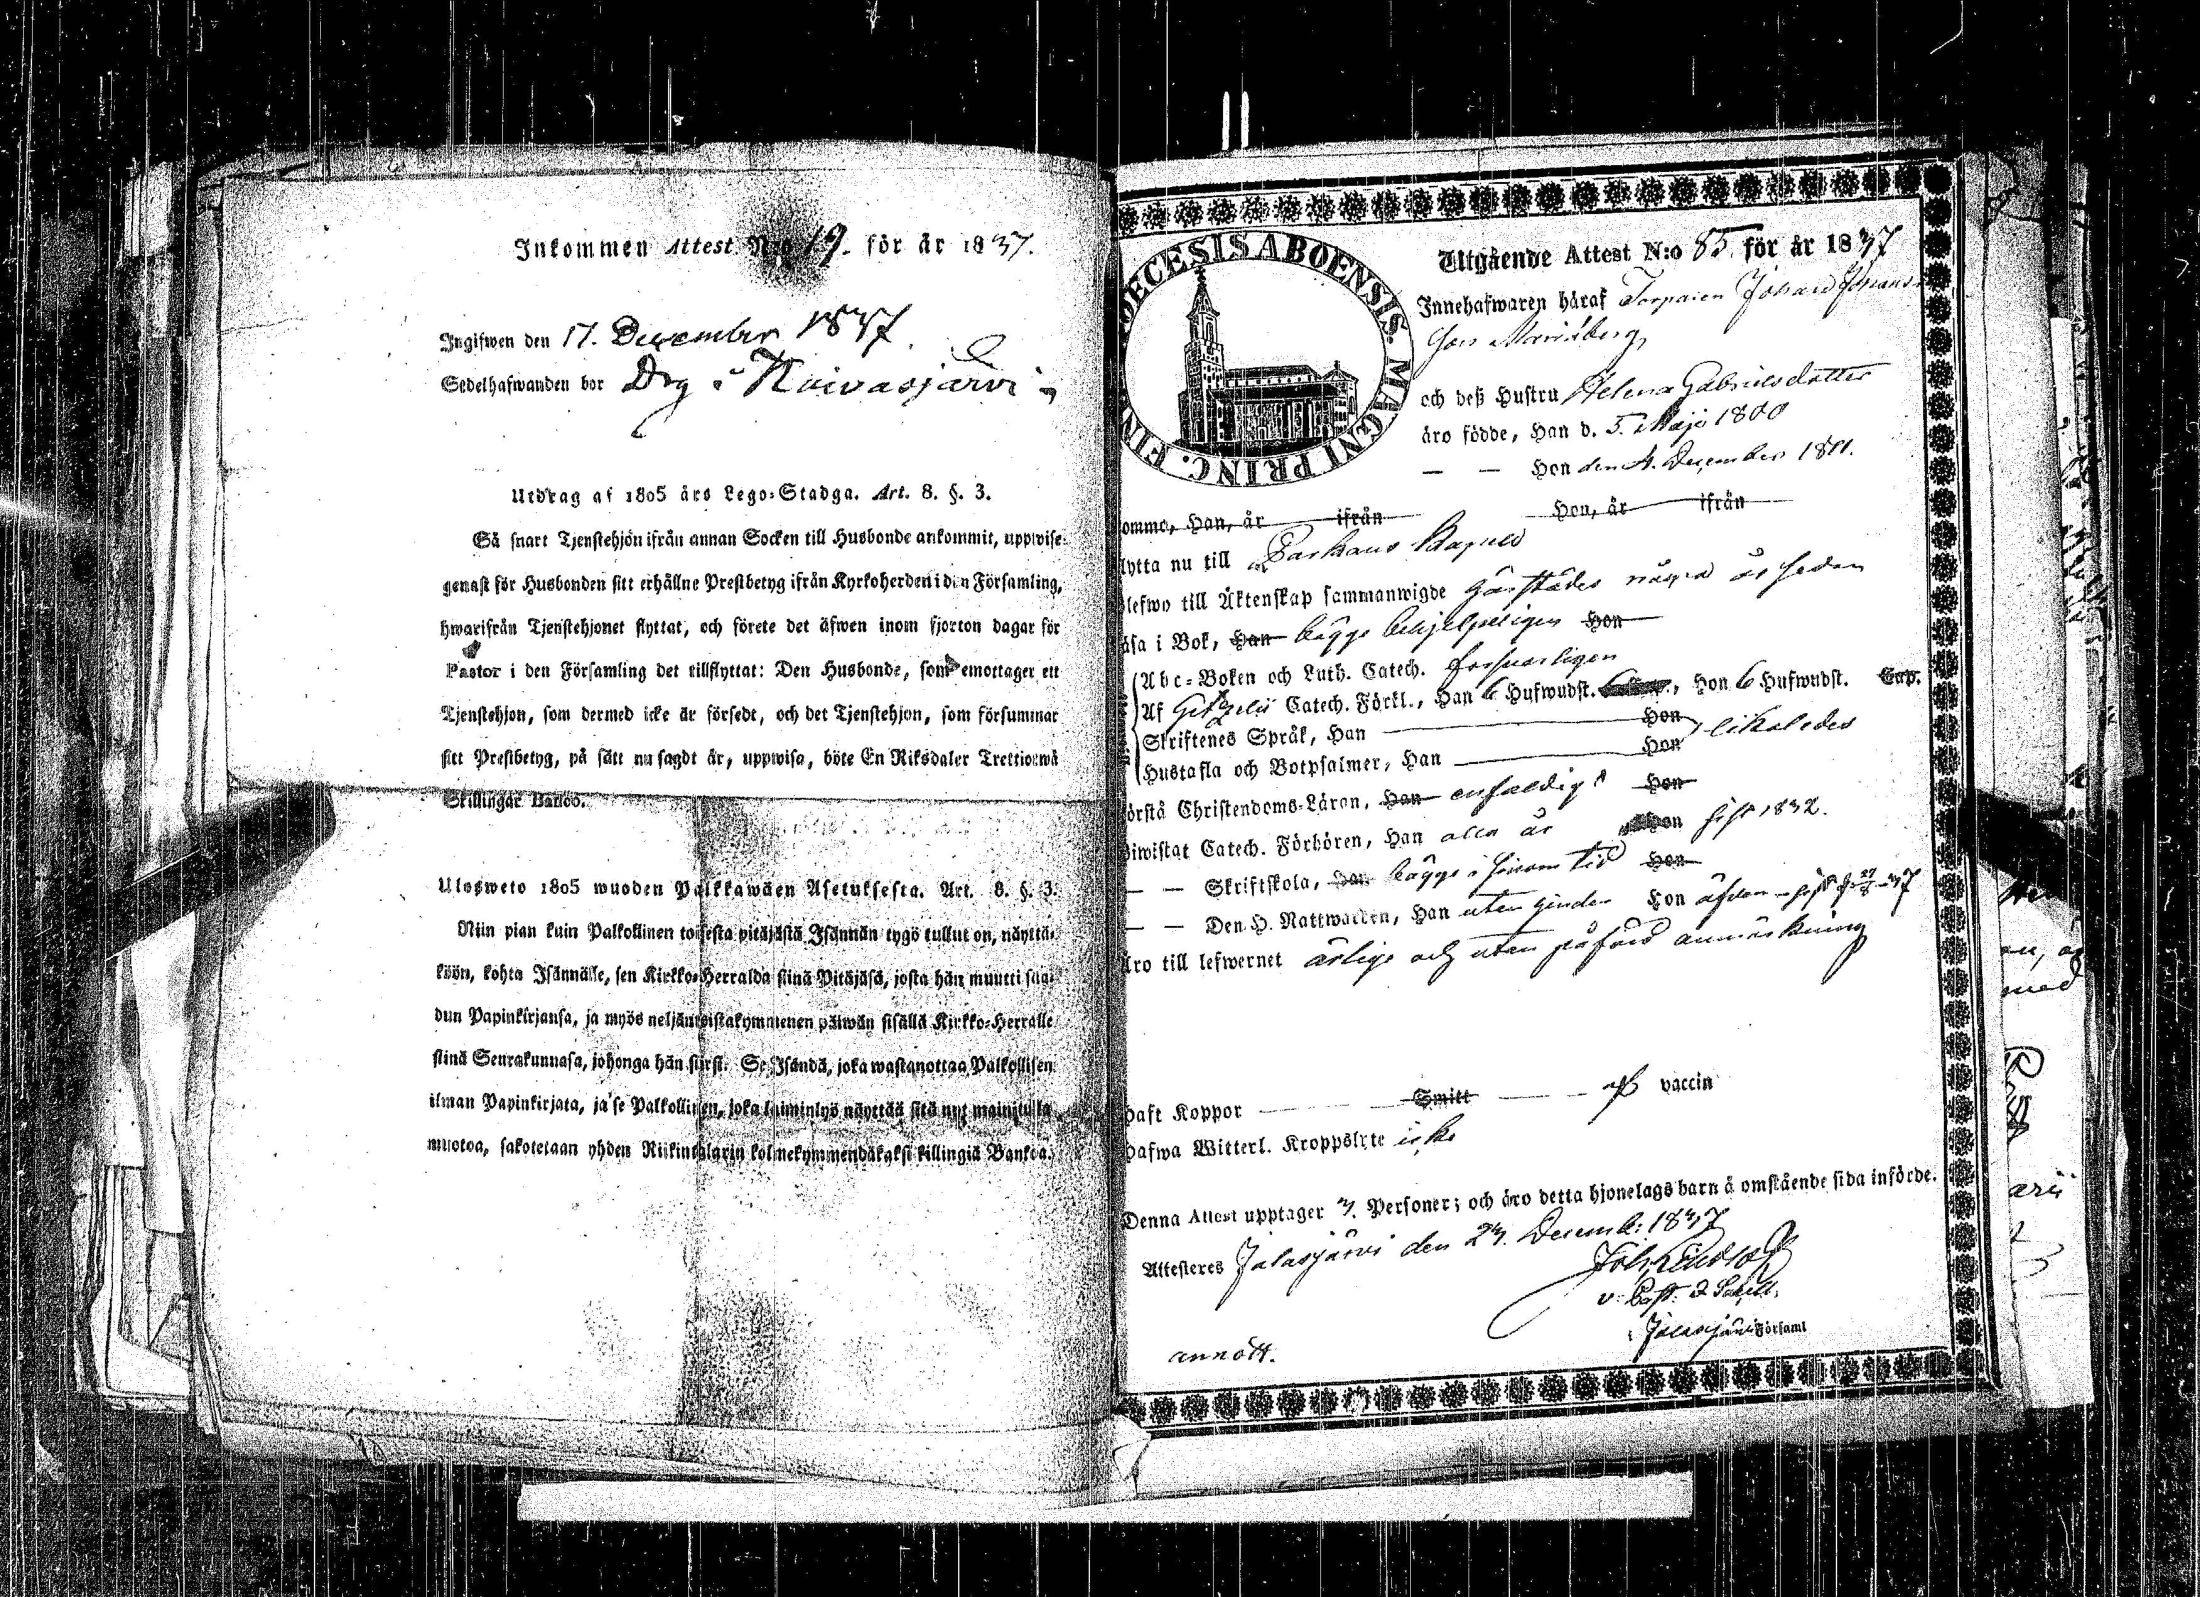 Inkommen Attest N:o 19. för år 1837.
Ingifwen den 17. December 1837.
Sedelhafwanden bor Drg i Kuivasjärvi
Utdrag af 1805 års Lego-Stadga. Art. 8. §. 3.
Så snart Tjenstehjon ifrån annan Socken till Husbonde ankommit, uppwise
genast för Husbonden sitt erhållne Prestbetyg ifrån Kyrkoherden i den Församling,
hwarifrån Tjenstehjonet flyttat, och förete det äfwen inom fjorton dagar för
Pastor i den Församling det tillflyttat: Den Husbonde, som emottager ett
Tjenstehjon, som dermed icke är försedt, och det Tjenstehjon, som försummar
sitt Prestbetyg, på sätt nu sagdt är, uppwisa, böte En Riksdaler Trettiotwå
Skillingar Banco.
Ulosweto 1805 wuoden Palkkawäen Asetuksesta. Art. 8. §. 3.
Niin pian kuin Palkollinen toisesta pitäjästä Isännän tygö tullut on, näyttä-
köön, kohta Isännälle, sen Kirkko-Herralda siinä Pitäjäsä, josta hän muutti saa-
dun Papinkirjansa, ja myös neljäntoistakymmenen päiwän sisällä Kirkko-Herralle
siinä Seurakunnasa, johonga hän siirsi. Se Isändä, joka wastanottaa Palkollisen
ilman Papinkirjata, ja se Palkollinen, joka laiminlyö näyttää sitä nyt mainitulla
muotoa, sakotetaan yhden Riikintalarin kolmekymmendäkaksi killingiä Bankoa.
DIOECESIS ABOENSIS. MAGNI PRINC. FIN
Utgående Attest N:o 85 för år 1837
Innehafwaren häraf Torparen Johan Johans-
son
och deß Hustru Helena Gabrielsdotter
äro födde, Han d. 5. Maji 1800
— — Hon den 4. December 1811.
omme, Han, år ifrån Hon, år ifrån
lytta nu till Parkano
lefwo till Äktenskap sammanwigde några år sedan
äsa i Bok, Han bägge behjelpeligen Hon
Abc-Boken och Luth. Catech. forsvarligen
Af Gezelii Catech. Förkl., Han 6 Hufwudst., Hon 6 Hufwudst. Cap.
Skriftenes Språk, Han Hon likaledes
Hustafla och Botpsalmer, Han Hon
örstå Christendoms-Läran, Han enfaldigt Hon
biwistat Catech. Förhören, Han alla år Hon sist 1832.
— — Skriftskola, Han bägge i sinom tid Hon
— — Den H. Nattwarden, Han Hon äfven sist
Äro till lefwernet ärlige och utan påförd anmärkning
haft Koppor Smitt vaccin
hafwa Witterl. Kroppslyte icke
Denna Attest upptager 3. Personer; och äro detta hjonelags barn å omstående sida införde.
Attesteres Jalasjärvi den 23. Decemb: 1837
v. Past.
i Jalasjärvi Församl
annott.